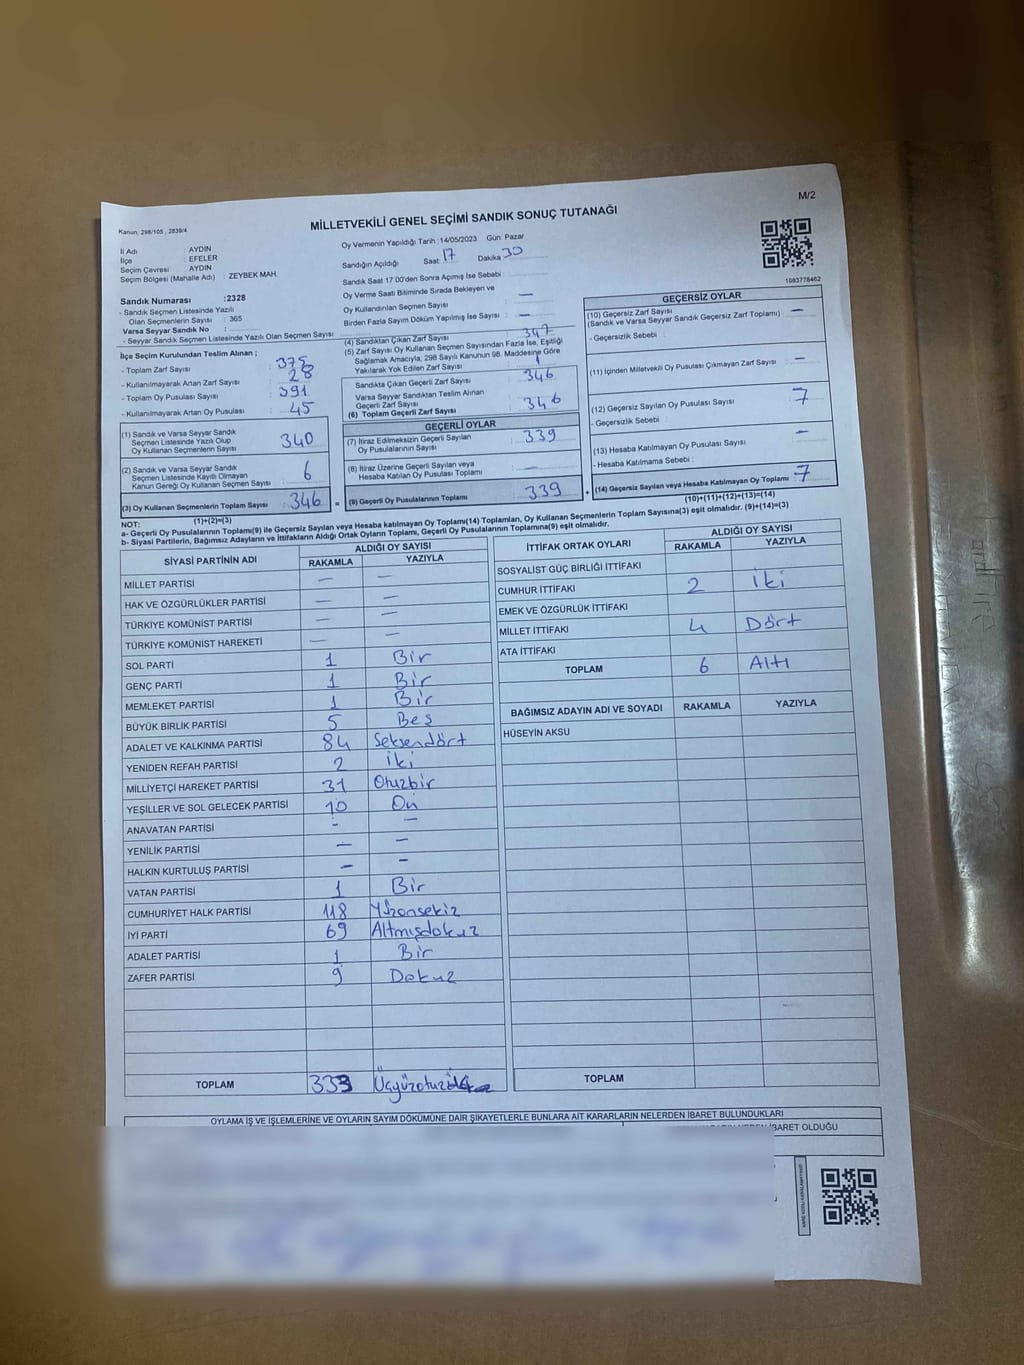 M/2
Kanun: 298/105 , 2839/4
MİLLETVEKİLİ GENEL SEÇİMİ SANDIK SONUÇ TUTANAĞI
İl Adı : AYDIN
İlçe : EFELER
Seçim Çevresi : AYDIN
Seçim Bölgesi (Mahalle Adı) : ZEYBEK MAH.
Sandık Numarası :2328
- Sandık Seçmen Listesinde Yazılı
Olan Seçmenlerin Sayısı : 365
Varsa Seyyar Sandık No :
- Seyyar Sandık Seçmen Listesinde Yazılı Olan Seçmen Sayısı :
İlçe Seçim Kurulundan Teslim Alınan ;
- Toplam Zarf Sayısı : 375
- Kullanılmayarak Artan Zarf Sayısı : 28
- Toplam Oy Pusulası Sayısı : 391
- Kullanılmayarak Artan Oy Pusulası : 45
(1) Sandık ve Varsa Seyyar Sandık
Seçmen Listesinde Yazılı Olup
Oy Kullanan Seçmenlerin Sayısı : 340
(2) Sandık ve Varsa Seyyar Sandık
Seçmen Listesinde Kayıtlı Olmayan
Kanun Gereği Oy Kullanan Seçmen Sayısı : 6
(3) Oy Kullanan Seçmenlerin Toplam Sayısı : 346 =
(1)+(2)=(3)
Oy Vermenin Yapıldığı Tarih :14/05/2023 Gün: Pazar
Sandığın Açıldığı Saat: 17 Dakika 30
Sandık Saat 17:00'den Sonra Açımış İse Sebebi :
Oy Verme Saati Bitiminde Sırada Bekleyen ve
Oy Kullandırılan Seçmen Sayısı : —
Birden Fazla Sayım Döküm Yapılmış İse Sayısı : —
(4) Sandıktan Çıkan Zarf Sayısı : 347
(5) Zarf Sayısı Oy Kullanan Seçmen Sayısından Fazla İse, Eşitliği
Sağlamak Amacıyla, 298 Sayılı Kanunun 98. Maddesine Göre
Yakılarak Yok Edilen Zarf Sayısı : 1
Sandıkta Çıkan Geçerli Zarf Sayısı : 346
Varsa Seyyar Sandıktan Teslim Alınan
Geçerli Zarf Sayısı :
(6) Toplam Geçerli Zarf Sayısı : 346
GEÇERLİ OYLAR
(7) İtiraz Edilmeksizin Geçerli Sayılan
Oy Pusulalarının Sayısı : 339
(8) İtiraz Üzerine Geçerli Sayılan veya
Hesaba Katılan Oy Pusulası Toplamı : —
(9) Geçerli Oy Pusulalarının Toplamı : 339 +
1083778462
GEÇERSİZ OYLAR
(10) Geçersiz Zarf Sayısı : —
(Sandık ve Varsa Seyyar Sandık Geçersiz Zarf Toplamı)
- Geçersizlik Sebebi :
(11) İçinden Milletvekili Oy Pusulası Çıkmayan Zarf Sayısı : —
(12) Geçersiz Sayılan Oy Pusulası Sayısı : 7
- Geçersizlik Sebebi :
(13) Hesaba Katılmayan Oy Pusulası Sayısı : —
- Hesaba Katılmama Sebebi :
(14) Geçersiz Sayılan veya Hesaba Katılmayan Oy Toplamı : 7
(10)+(11)+(12)+(13)=(14)
NOT:
a- Geçerli Oy Pusulalarının Toplamı(9) ile Geçersiz Sayılan veya Hesaba katılmayan Oy Toplamı(14) Toplamları, Oy Kullanan Seçmenlerin Toplam Sayısına(3) eşit olmalıdır. (9)+(14)=(3)
b- Siyasi Partilerin, Bağımsız Adayların ve İttifakların Aldığı Ortak Oyların Toplamı, Geçerli Oy Pusulalarının Toplamına(9) eşit olmalıdır.
SİYASİ PARTİNİN ADI ALDIĞI OY SAYISI
RAKAMLA YAZIYLA
MİLLET PARTİSİ — —
HAK VE ÖZGÜRLÜKLER PARTİSİ — —
TÜRKİYE KOMÜNİST PARTİSİ — —
TÜRKİYE KOMÜNİST HAREKETİ — —
SOL PARTİ 1 Bir
GENÇ PARTİ 1 Bir
MEMLEKET PARTİSİ 1 Bir
BÜYÜK BİRLİK PARTİSİ 5 Beş
ADALET VE KALKINMA PARTİSİ 84 Seksendört
YENİDEN REFAH PARTİSİ 2 İki
MİLLİYETÇİ HAREKET PARTİSİ 31 Otuzbir
YEŞİLLER VE SOL GELECEK PARTİSİ 10 On
ANAVATAN PARTİSİ - —
YENİLİK PARTİSİ — —
HALKIN KURTULUŞ PARTİSİ — —
VATAN PARTİSİ 1 Bir
CUMHURİYET HALK PARTİSİ 118 Yüzonsekiz
İYİ PARTİ 69 Altmışdokuz
ADALET PARTİSİ 1 Bir
ZAFER PARTİSİ 9 Dokuz
TOPLAM 333
İTTİFAK ORTAK OYLARI ALDIĞI OY SAYISI
RAKAMLA YAZIYLA
SOSYALİST GÜÇ BİRLİĞİ İTTİFAKI
CUMHUR İTTİFAKI 2 İki
EMEK VE ÖZGÜRLÜK İTTİFAKI
MİLLET İTTİFAKI 4 Dört
ATA İTTİFAKI
TOPLAM 6 Altı
BAĞIMSIZ ADAYIN ADI VE SOYADI RAKAMLA YAZIYLA
HÜSEYİN AKSU
TOPLAM
OYLAMA İŞ VE İŞLEMLERİNE VE OYLARIN SAYIM DÖKÜMÜNE DAİR ŞİKAYETLERLE BUNLARA AİT KARARLARIN NELERDEN İBARET BULUNDUKLARI
İBARET OLDUĞU